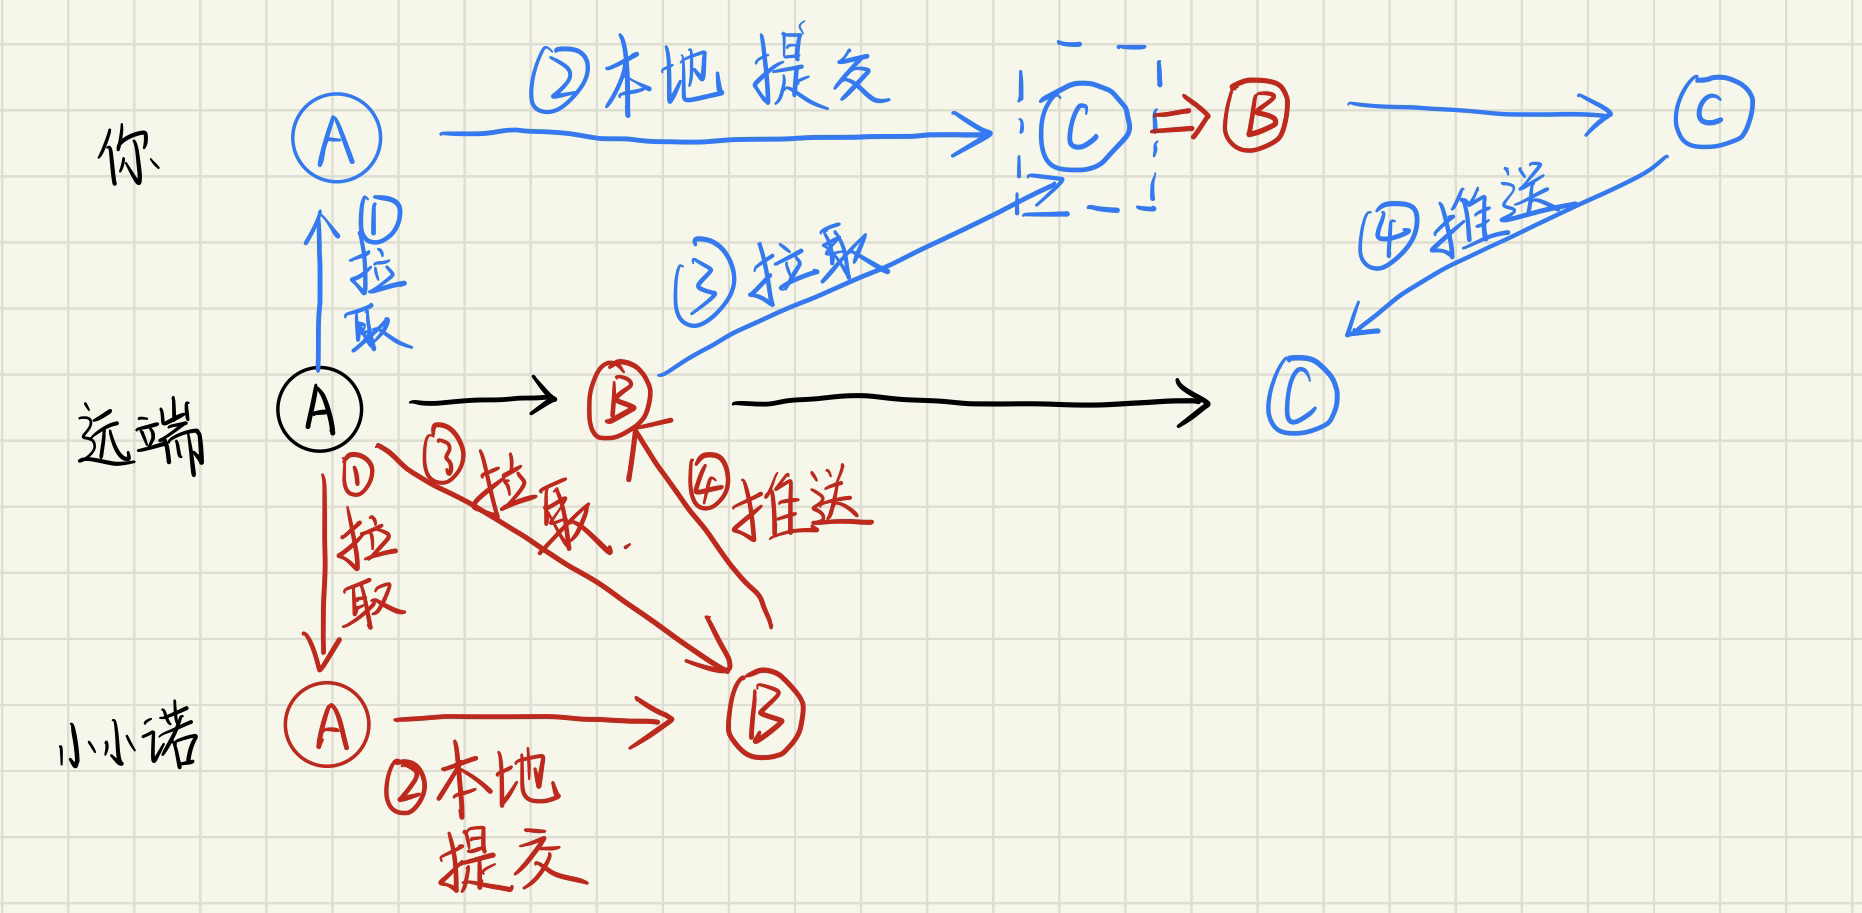 ②本地提交
你
A
C
B
C
①拉取
③拉取
④推送
远端
A
B
C
①拉取
③拉取
④推送
小小诺
A
B
②本地
提交